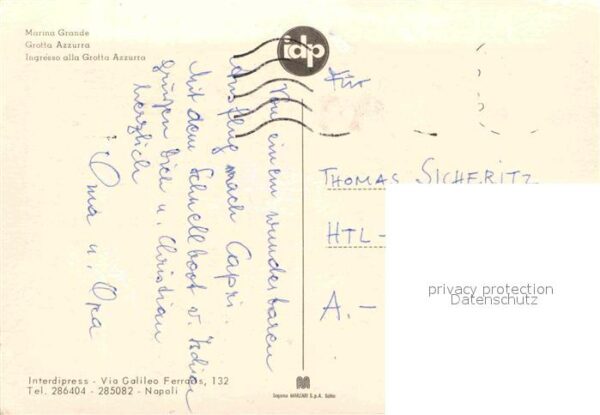 Marina Grande
Grotta Azzurra
Ingresso alla Grotta Azzurra
idp
Von einem wunderbaren
Ausflug nach Capri
mit dem Schnellboot v. Ischia
grüßen Dich u. Christian
herzlich
Oma u. Opa
Für
THOMAS SICHERITZ
HTL-
A.-
privacy protection
Datenschutz
Interdipress - Via Galileo Ferraris, 132
Tel. 286404 - 285082 - Napoli